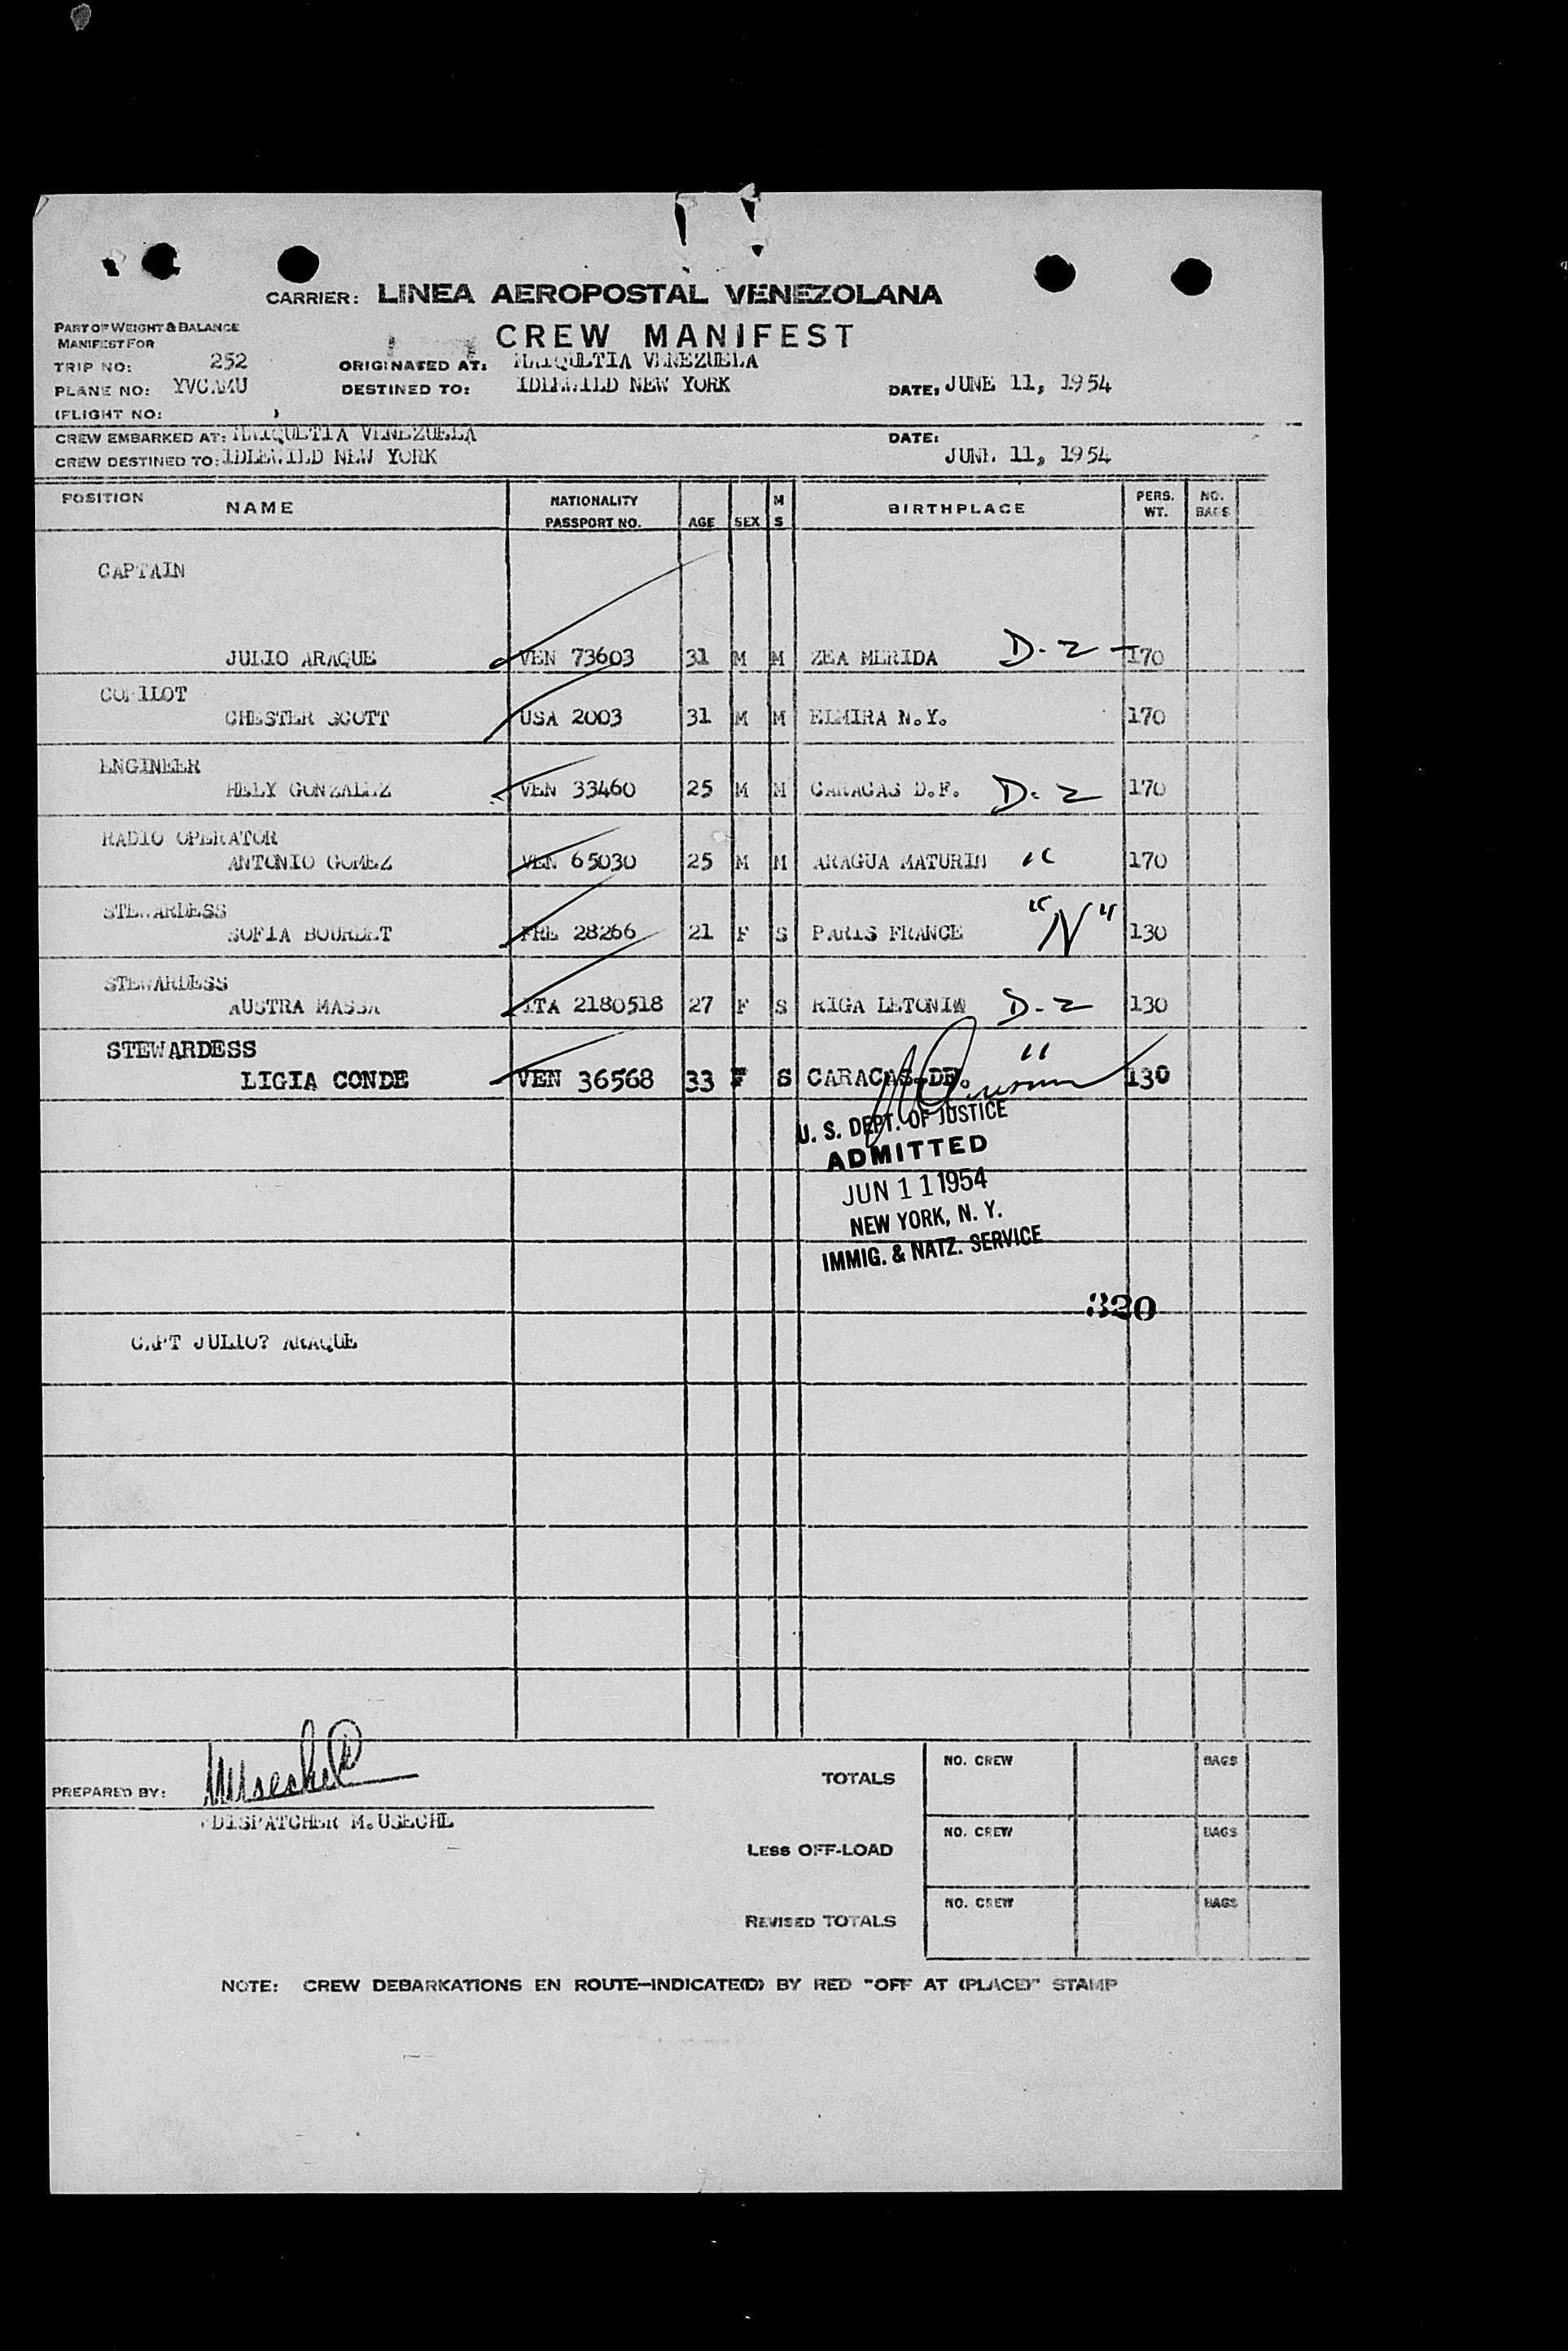 CARRIER: LINEA AEROPOSTAL VENEZOLANA
PART OF WEIGHT & BALANCE
MANIFEST FOR
CREW MANIFEST
TRIP NO: 252
ORIGINATED AT: MAIQUETIA VENEZUELA
PLANE NO:
DESTINED TO: IDLEWILD NEW YORK
DATE: JUNE 11, 1954
(FLIGHT NO: )
CREW EMBARKED AT: MAIQUETIA VENEZUELA
DATE:
CREW DESTINED TO: IDLEWILD NEW YORK
JUNE 11, 1954
POSITION NAME NATIONALITY PASSPORT NO. AGE SEX M S BIRTHPLACE PERS. WT. NO. BAGS
CAPTAIN
JULIO ARAQUE VEN 73603 31 M M ZEA MERIDA D-2 170
COPILOT
CHESTER SCOTT USA 2003 31 M M ELMIRA N.Y. 170
ENGINEER
HELY GONZALEZ VEN 33460 25 M M CARACAS D.F. D-2 170
RADIO OPERATOR
ANTONIO GOMEZ VEN 65030 25 M M ARAGUA MATURIN " 170
STEWARDESS
SOFIA BOURDET FRE 28266 21 F S PARIS FRANCE "N" 130
STEWARDESS
AUSTRA MASSA ITA 2180518 27 F S RIGA LETONIA D-2 130
STEWARDESS
LIGIA CONDE VEN 36568 33 F S CARACAS-DF. " 130
U. S. DEPT. OF JUSTICE
ADMITTED
JUN 11 1954
NEW YORK, N. Y.
IMMIG. & NATZ. SERVICE
320
CAPT JULIO? ARAQUE
PREPARED BY: MUseche
DISPATCHER M.USECHE
TOTALS NO. CREW BAGS
LESS OFF-LOAD NO. CREW BAGS
REVISED TOTALS NO. CREW BAGS
NOTE: CREW DEBARKATIONS EN ROUTE—INDICATE(D) BY RED "OFF AT (PLACE)" STAMP